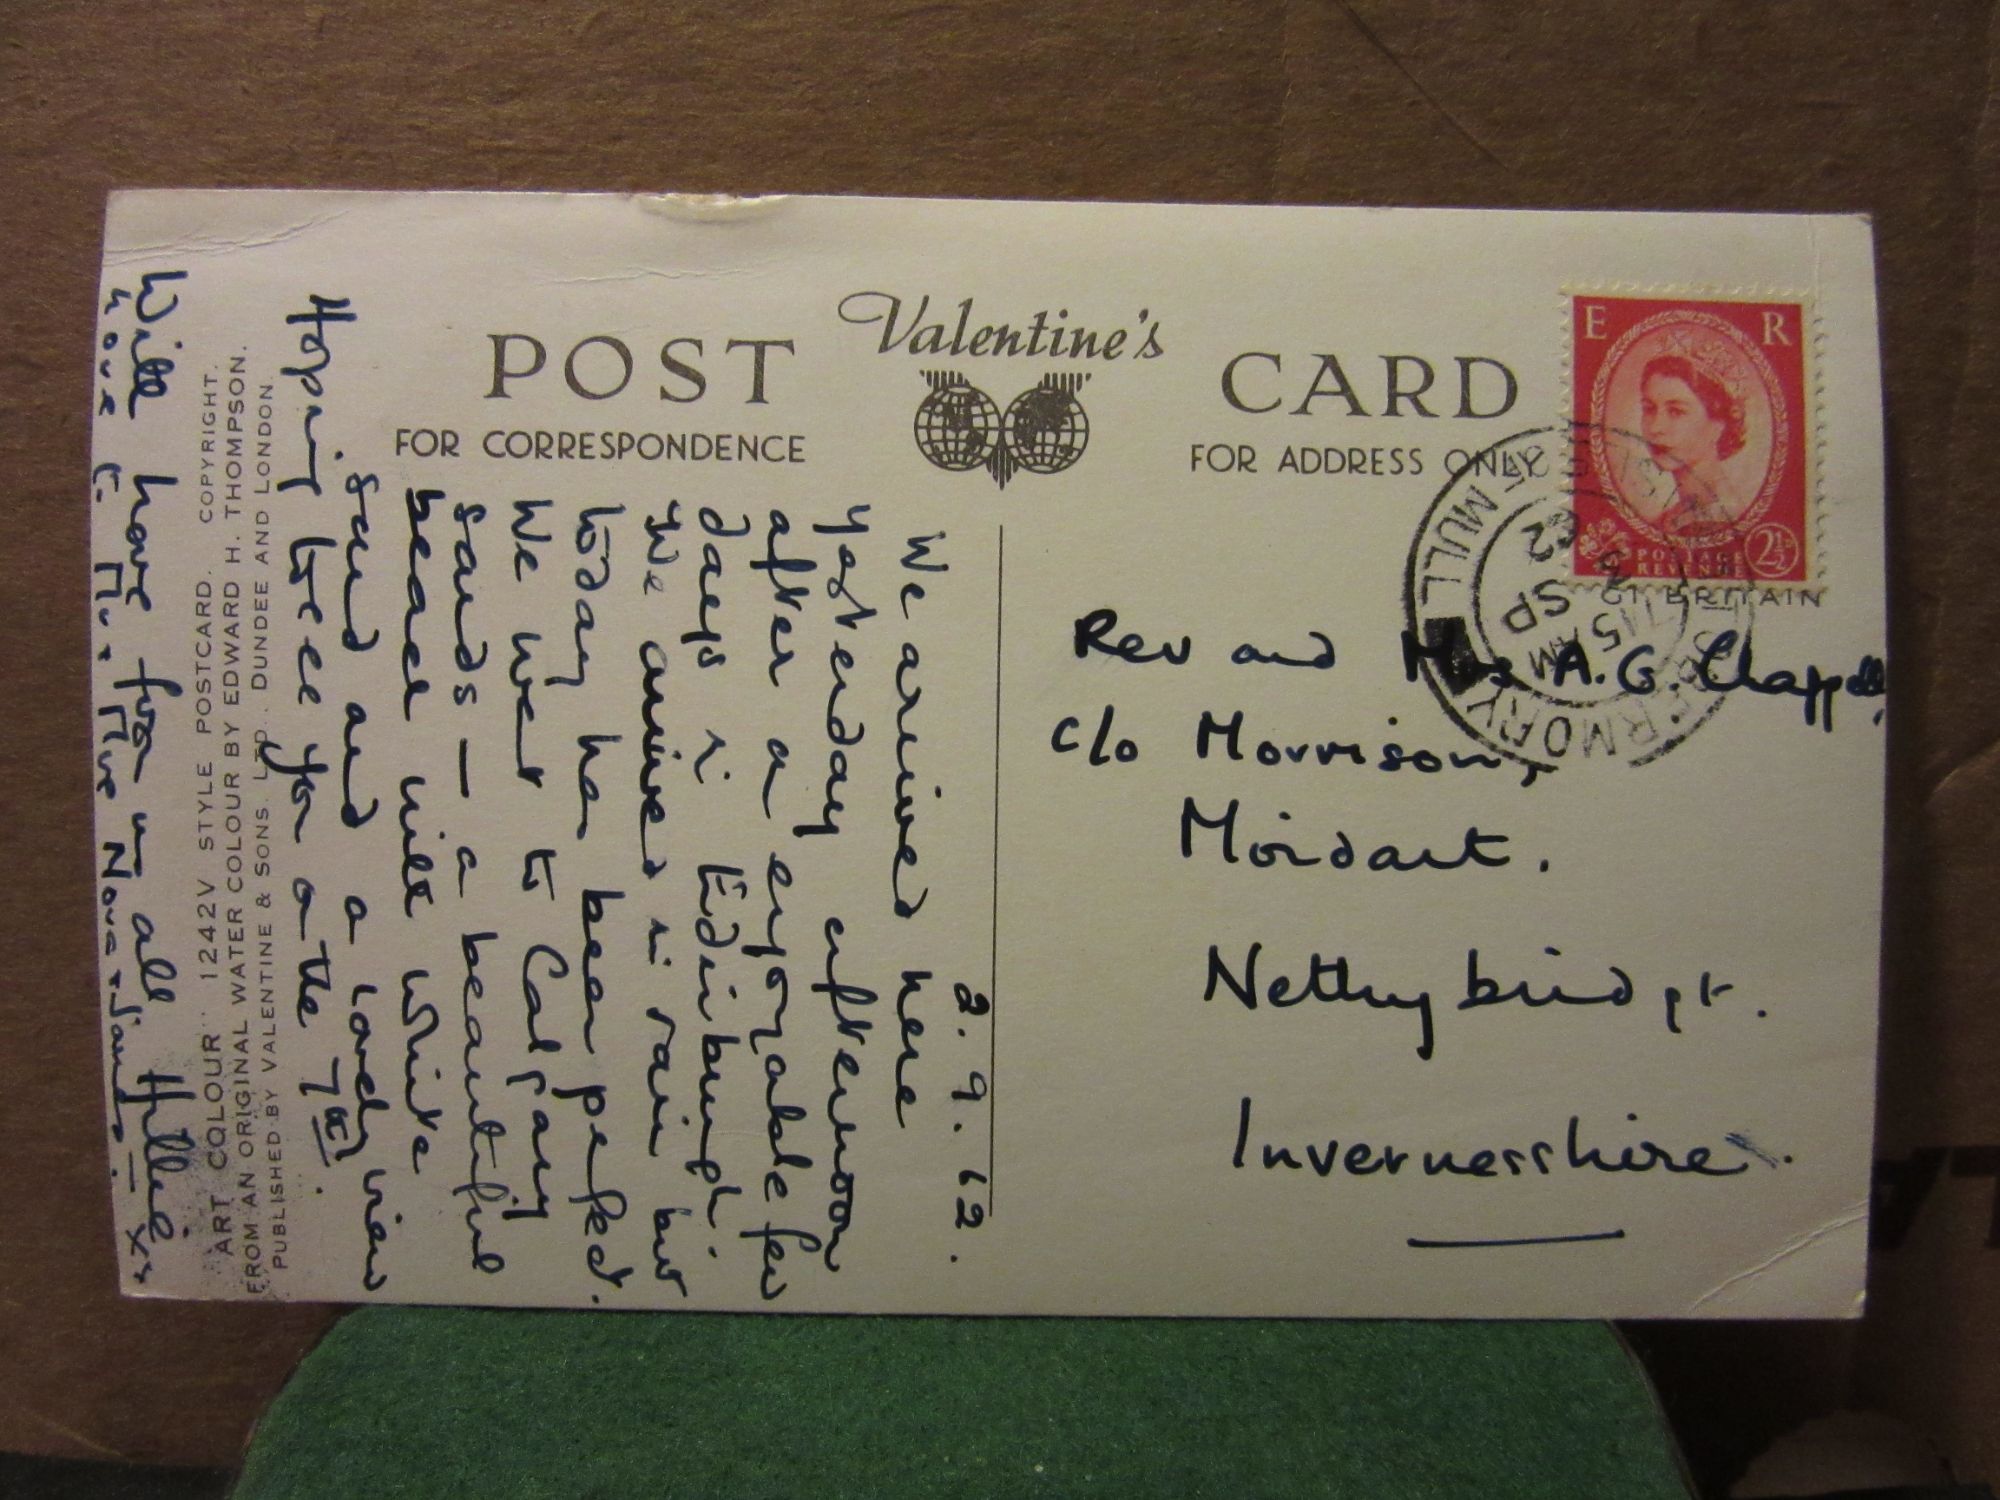 POST Valentine's CARD
FOR CORRESPONDENCE
FOR ADDRESS ONLY
E R
POSTAGE REVENUE 2½D
GT BRITAIN
TOBERMORY ISLE OF MULL
5 SP
62
Rev and Mrs A.G. Chappell,
c/o Morrison,
Moidart.
Nethybridge.
Invernesshire.
2.9.62.
We arrived here
yesterday afternoon
after a enjoyable few
days in Edinburgh.
We arrived in rain but
today has been perfect.
We went to Calgary
sands — a beautiful
beach with white
sand and a lovely view
Hoping to see you on the 7th.
PUBLISHED BY VALENTINE & SONS. LTD., DUNDEE AND LONDON.
FROM AN ORIGINAL WATER COLOUR BY EDWARD H. THOMPSON.
"ART COLOUR" 1242V STYLE POSTCARD. COPYRIGHT.
With love from us all